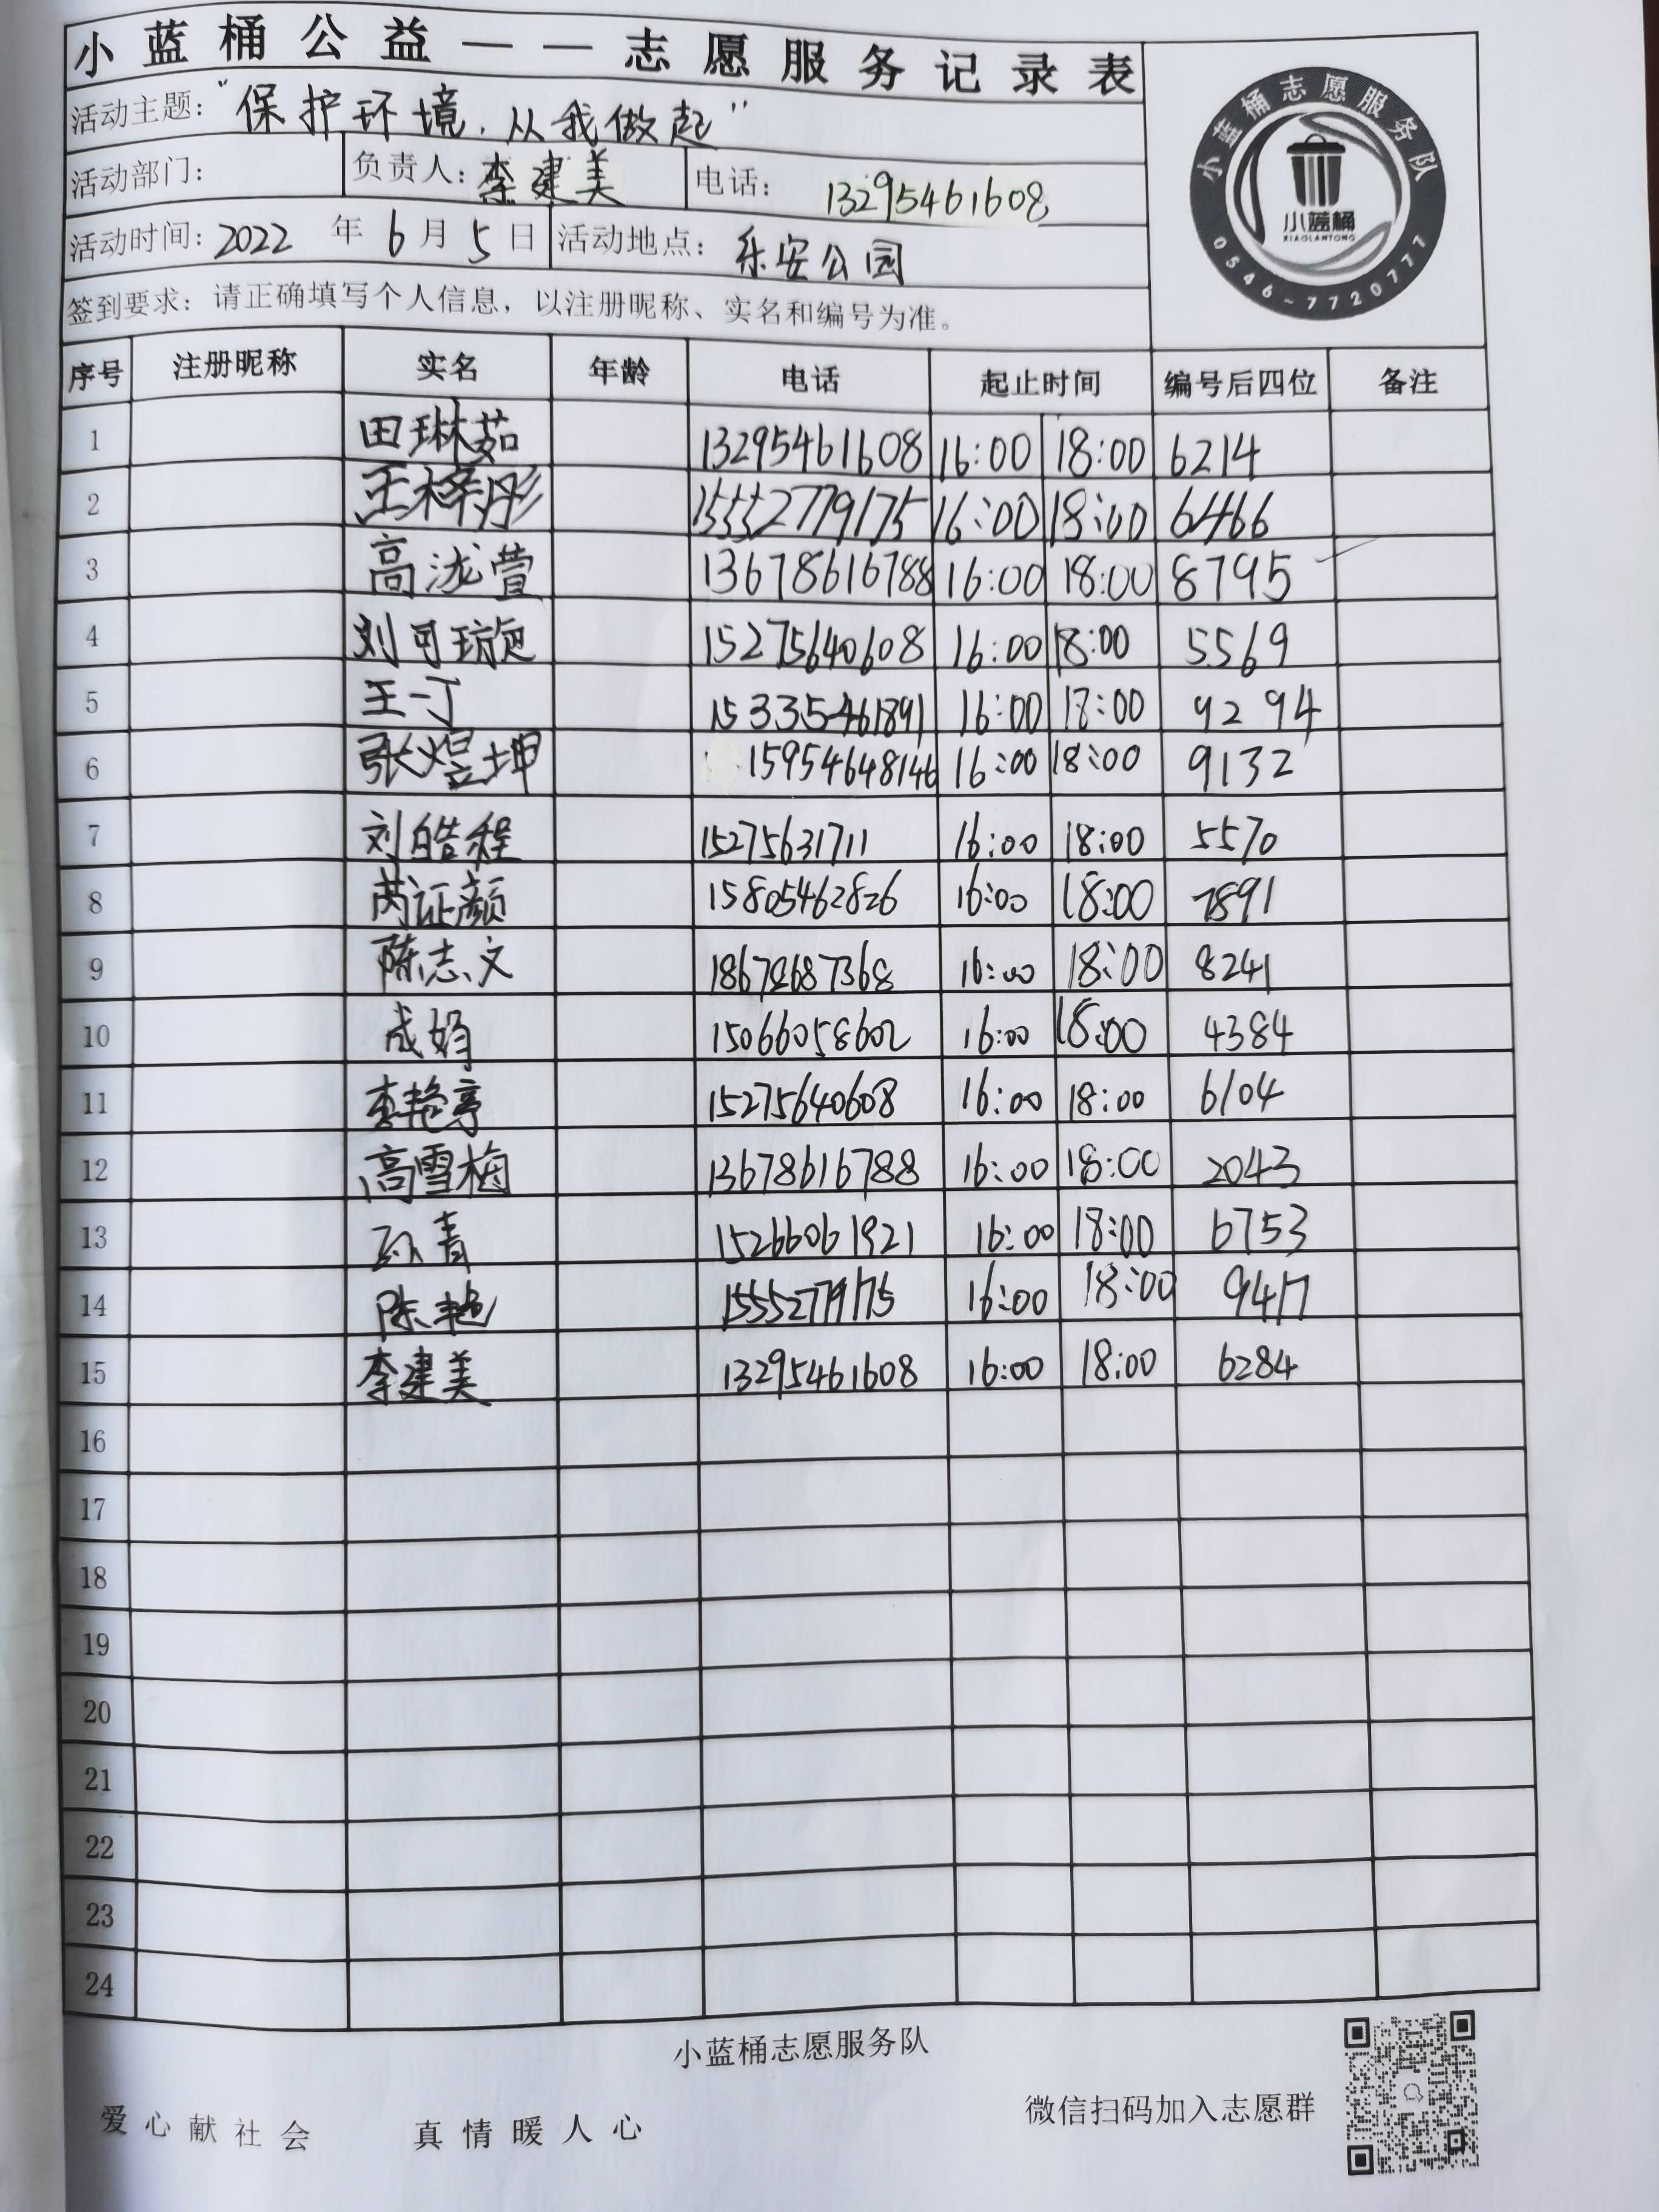 小蓝桶公益——志愿服务记录表
活动主题：“保护环境，从我做起”
活动部门： 负责人：李建美 电话：13295461608
活动时间：2022年6月5日 活动地点：乐安公园
签到要求：请正确填写个人信息，以注册昵称、实名和编号为准。
小蓝桶志愿服务队
小蓝桶
XIAOLANTONG
0546-7720777
序号 注册昵称 实名 年龄 电话 起止时间 编号后四位 备注
1 田琳茹 13295461608 16:00 18:00 6214
2 王梓彤 15552779175 16:00 18:00 6466
3 高泷萱 13678616788 16:00 18:00 8795
4 刘可璇 15275640608 16:00 18:00 5569
5 王一丁 15335461891 16:00 18:00 9294
6 张煜坤 15954648146 16:00 18:00 9132
7 刘皓程 15275631711 16:00 18:00 5570
8 芮证颜 15805462826 16:00 18:00 7891
9 陈志文 18678687368 16:00 18:00 8241
10 成娟 15066058602 16:00 18:00 4384
11 李艳亭 15275640608 16:00 18:00 6104
12 高雪梅 13678616788 16:00 18:00 2043
13 孙青 15266061921 16:00 18:00 6753
14 陈艳 15552779175 16:00 18:00 9417
15 李建美 13295461608 16:00 18:00 6284
16
17
18
19
20
21
22
23
24
小蓝桶志愿服务队
爱心献社会 真情暖人心 微信扫码加入志愿群